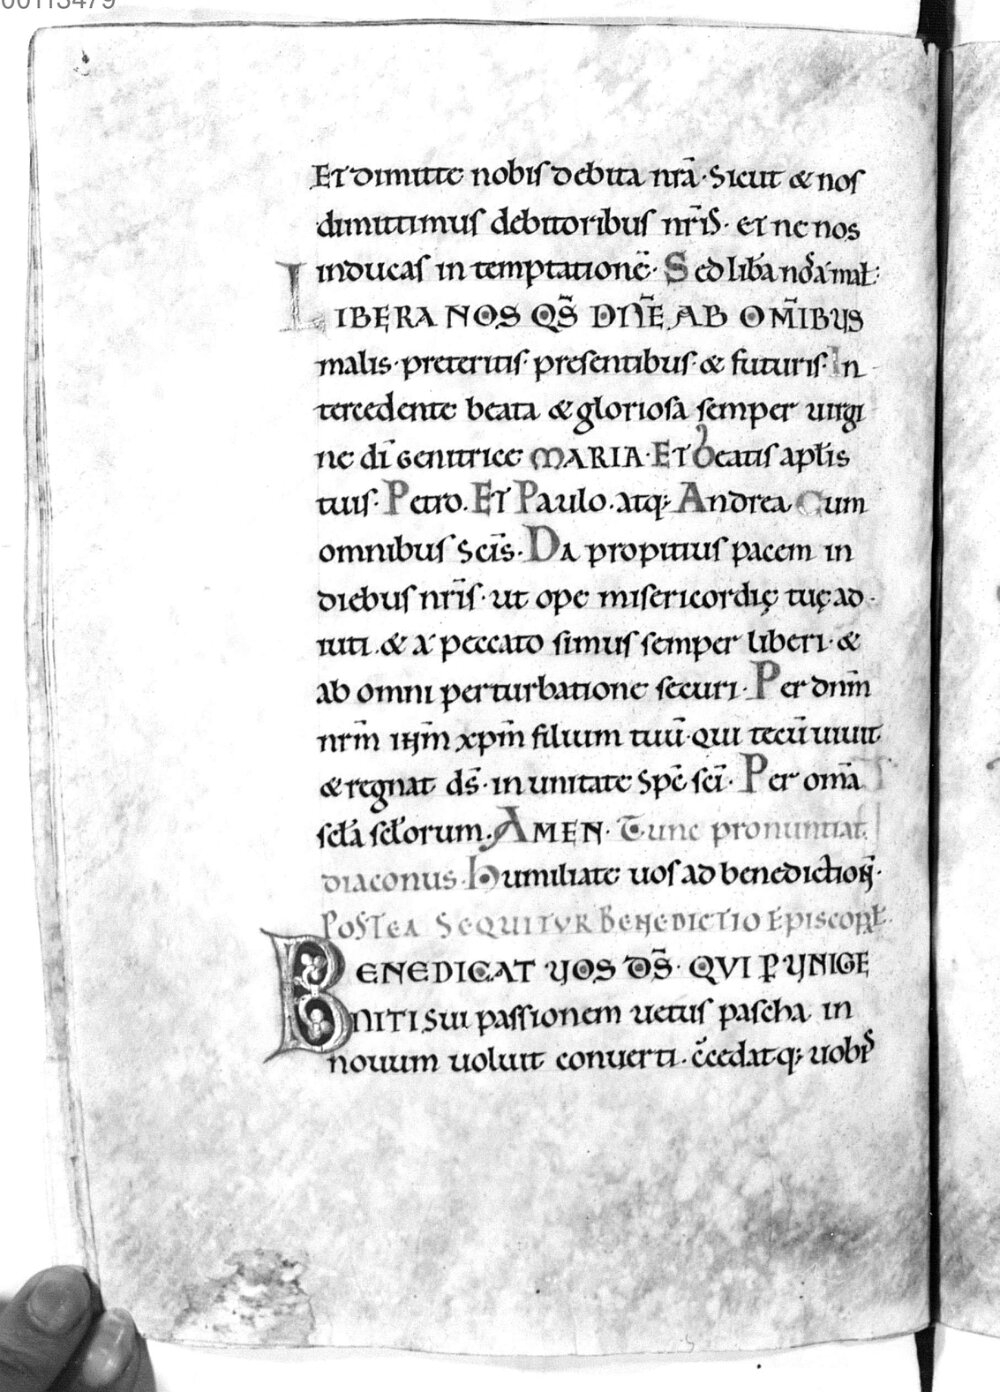 00113479
Et dimitte nobiſ debita nr̄a · Sicut & noſ
dimittimuſ debitoribuſ nr̄iſ · et ne nos
inducaſ in temptationē · Sed lib̄a noſ a mał :
LIBERA NOS QS̄ DN̄E AB OM̄IBUS
malis · preteritiſ · preſentibuſ · & futuriſ · In
tercedente beata & glorioſa ſemper uirgi
ne dī genitrice MARIA · ET beatiſ apłis
tuiſ · Petro . ET Paulo . atq; Andrea Cum
omnibuſ Scīs · DA propitiuſ pacem in
diebuſ nr̄iſ · ut ope miſericordię tuę ad ·
iuti . & a peccato ſimuſ ſemper liberi · &
ab omni perturbatione ſecuri · Per dnm̄
nrm̄ ihm̄ xpm̄ filium tuū · qui tecū uiuit
& regnat dſ̄ · in unitate Spc̄ ſcī · Per om̄a
ſcła ſcłorum . AMEN · Tunc pronuntiat
diaconus · Humiliate uoſ ad benedictionē ·
POSTEA SEQUITVR BENEDICTIO Episcopał .
BENEDICAT VOS DS̄ · QVI P̲ VNIGE
NITI Sui paſſionem uetuſ paſcha in
nouum uoluit conuerti . c̄cedatq; uobiſ